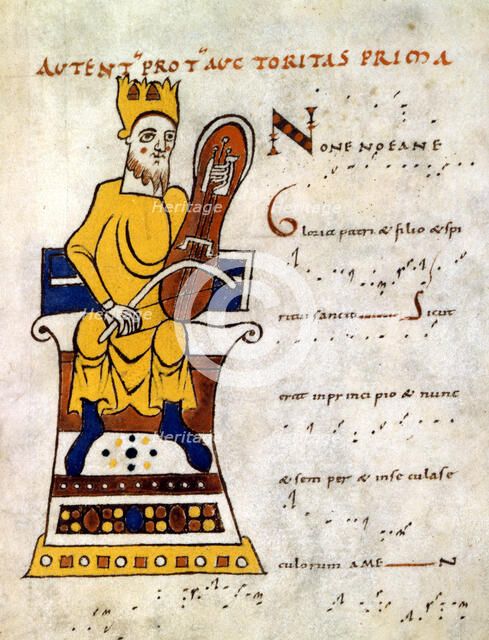 AUTENT' PROT' AUCTORITAS PRIMA
NONENOEANE
Gloria patri & filio & spi
ritui sancto Sicut
erat inprincipio & nunc
& semper & inseculase
culorum AMEN
Heritage
Heritage
Heritage
Heritage
Heritage
Heritage
Heritage